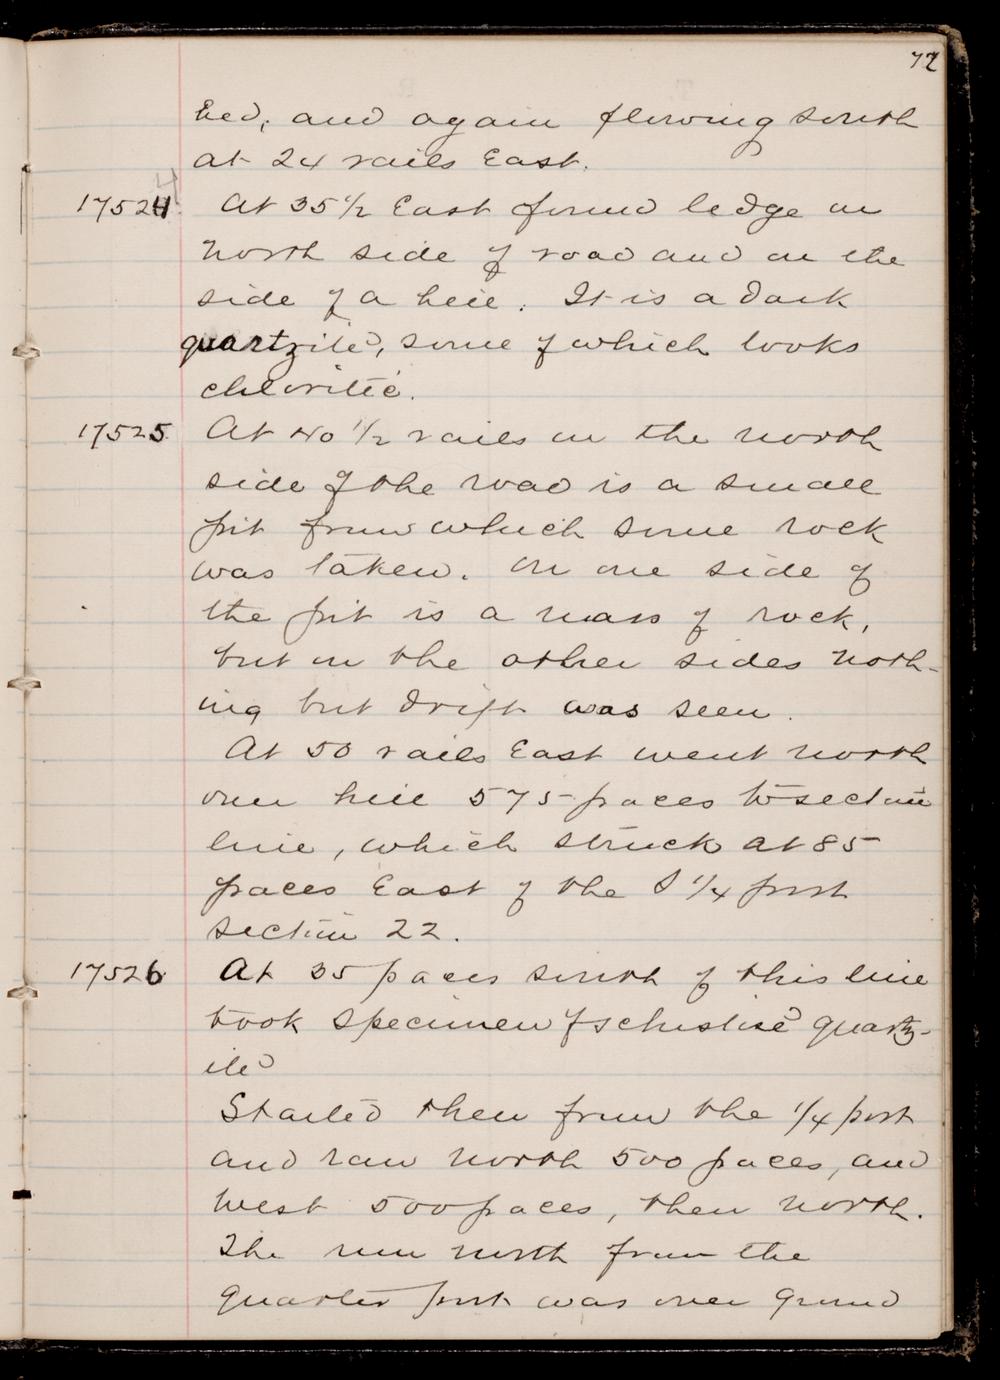 72
bed, and again flowing south
at 24 rails East.
17524 At 35 1/2 East found ledge on
north side of road and on the
side of a hill. It is a dark
quartzite, some of which looks
chloritic.
17525 At 40 1/2 rails on the north
side of the road is a small
pit from which some rock
was taken. On one side of
the pit is a mass of rock,
but on the other sides noth-
ing but drift was seen.
At 50 rails East went north
over hill 575 paces to section
line, which struck at 85
paces East of the S 1/4 post
section 22.
17526 At 35 paces south of this line
took specimen of schistise quartz-
ite
Started then from the 1/4 post
and ran north 500 paces, and
West 500 paces, then north.
The run north from the
quarter post was over ground